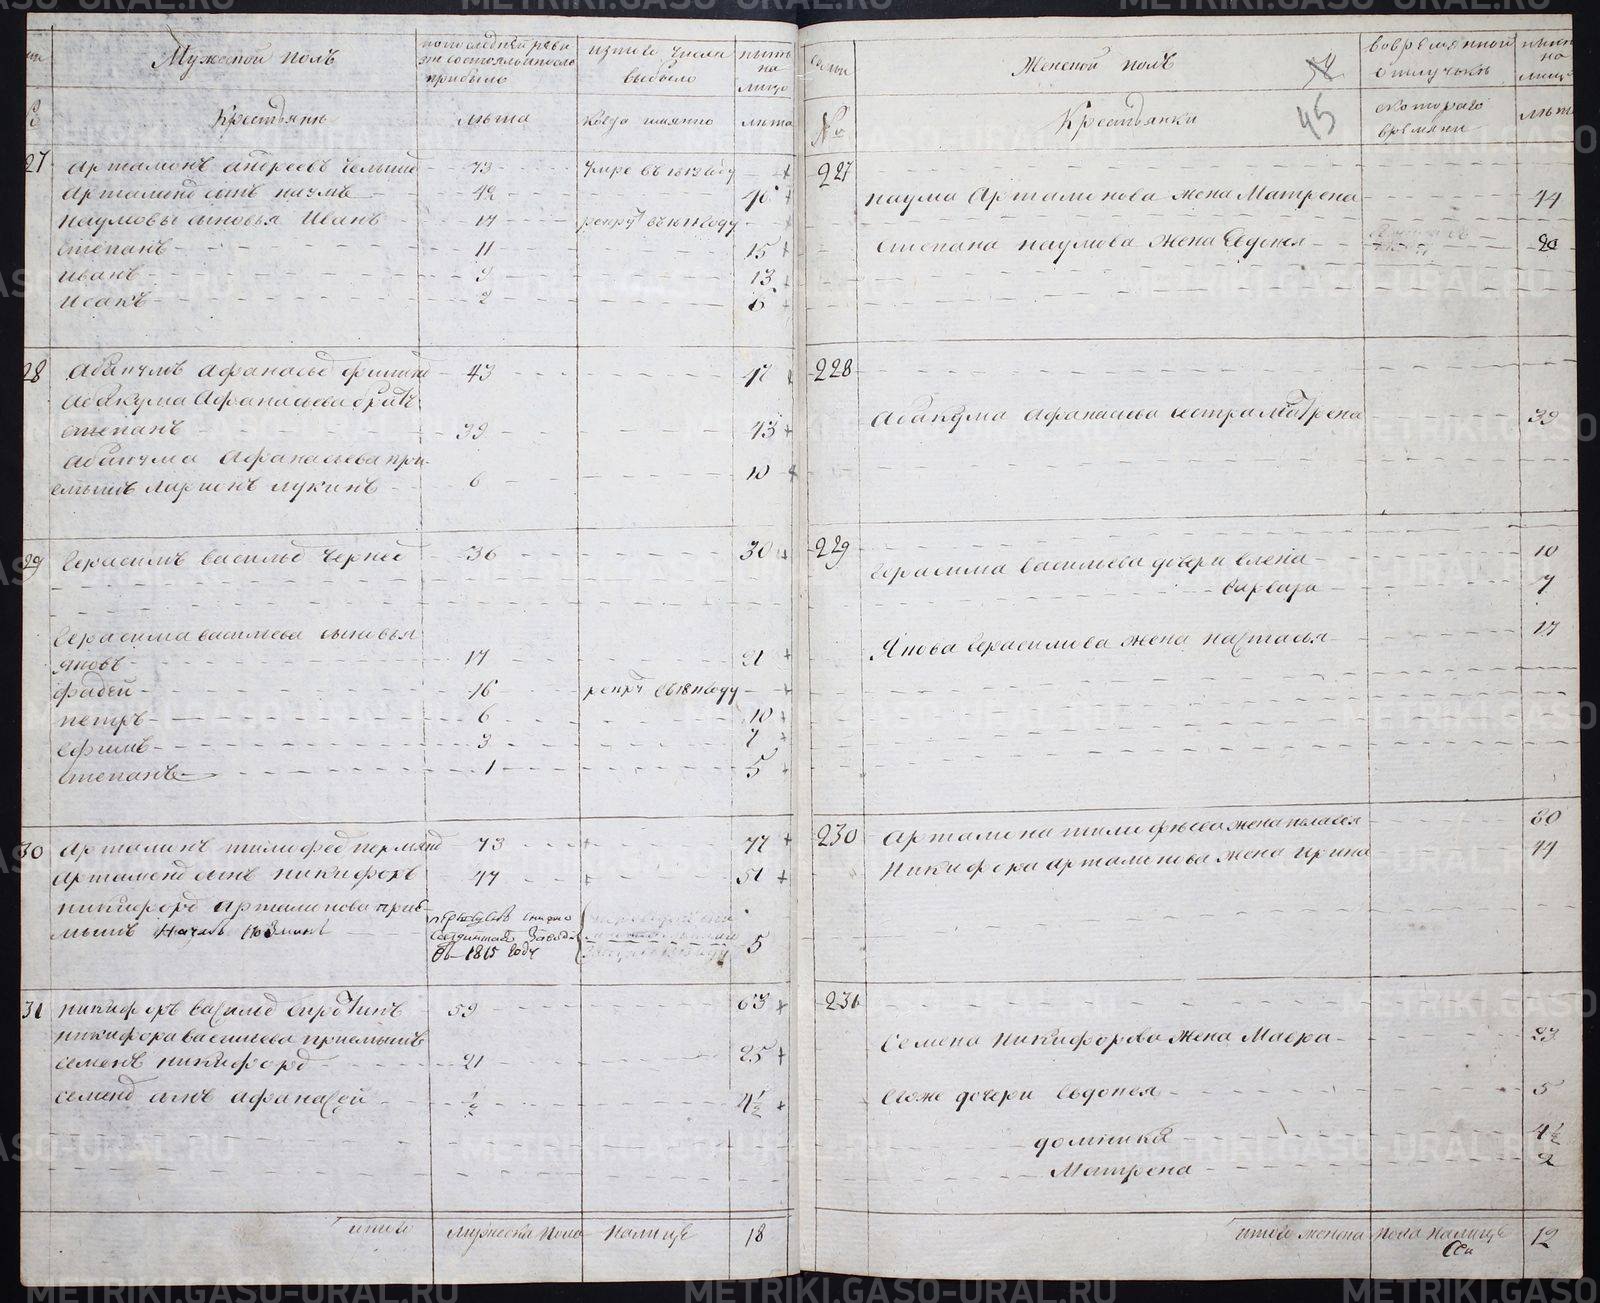 Мужеской полъ
по последней реви
зіи состояло и после
прибыло
изтого числа
выбыло
ныне
на
лицо
Крестьяне
лѣта
когда имянно
лѣта
27
Артамонъ Андреевъ
73
умре въ 1812 году
Артамонд сынъ Наумъ
42
46
Наумовы сыновья Иванъ
17
рекрут въ 1811 году
Степанъ
11
15
Иванъ
9
13
Исакъ
2
6
28
Абакумъ Афанасьевд
43
47
Абакума Афанасьева братъ
Степанъ
39
43
Абакума Афанасьева при-
емышъ Ларионъ Лукинъ
6
10
29
Герасимъ Васильевд
36
30
Герасима Васильева сыновья
Яковъ
17
21
Фадей
16
рекрут въ 1811 году
Петръ
6
10
Ефимъ
3
7
Степанъ
1
5
30
Артамонъ
73
77
Артамонд сынъ Никифоръ
47
51
Никифорд Артамонова прие-
мышъ Наумъ
въ 1815 году
5
31
Никифоръ Васильевд Сиротинъ
59
63
Никифора Васильева приемышъ
Семенъ Никифоровд
21
25
Семенд сынъ Афанасей
½
4½
итого
мужеска пола
налице
18
Женской полъ
во временной
отлучкѣ
ныне
на
лицо
45
№
Крестьянки
с котораго
времяни
лѣта
227
Наума Артамонова жена Матрена
44
Степана Наумова жена Евдокея
20
228
Абакума Афанасьева сестра Матрена
39
229
Герасима Васильева дочери Елена
10
Варвара
7
Якова Герасимова жена Настасья
17
230
Артамона жена Пелагея
30
Никифора Артамонова жена Ирина
44
231
Семена Никифорова жена Мавра
23
Ево же дочери Евдокея
5
Домника
4½
Матрена
2
итого женска
пола налице
12
METRIKI.GASO-URAL.RU